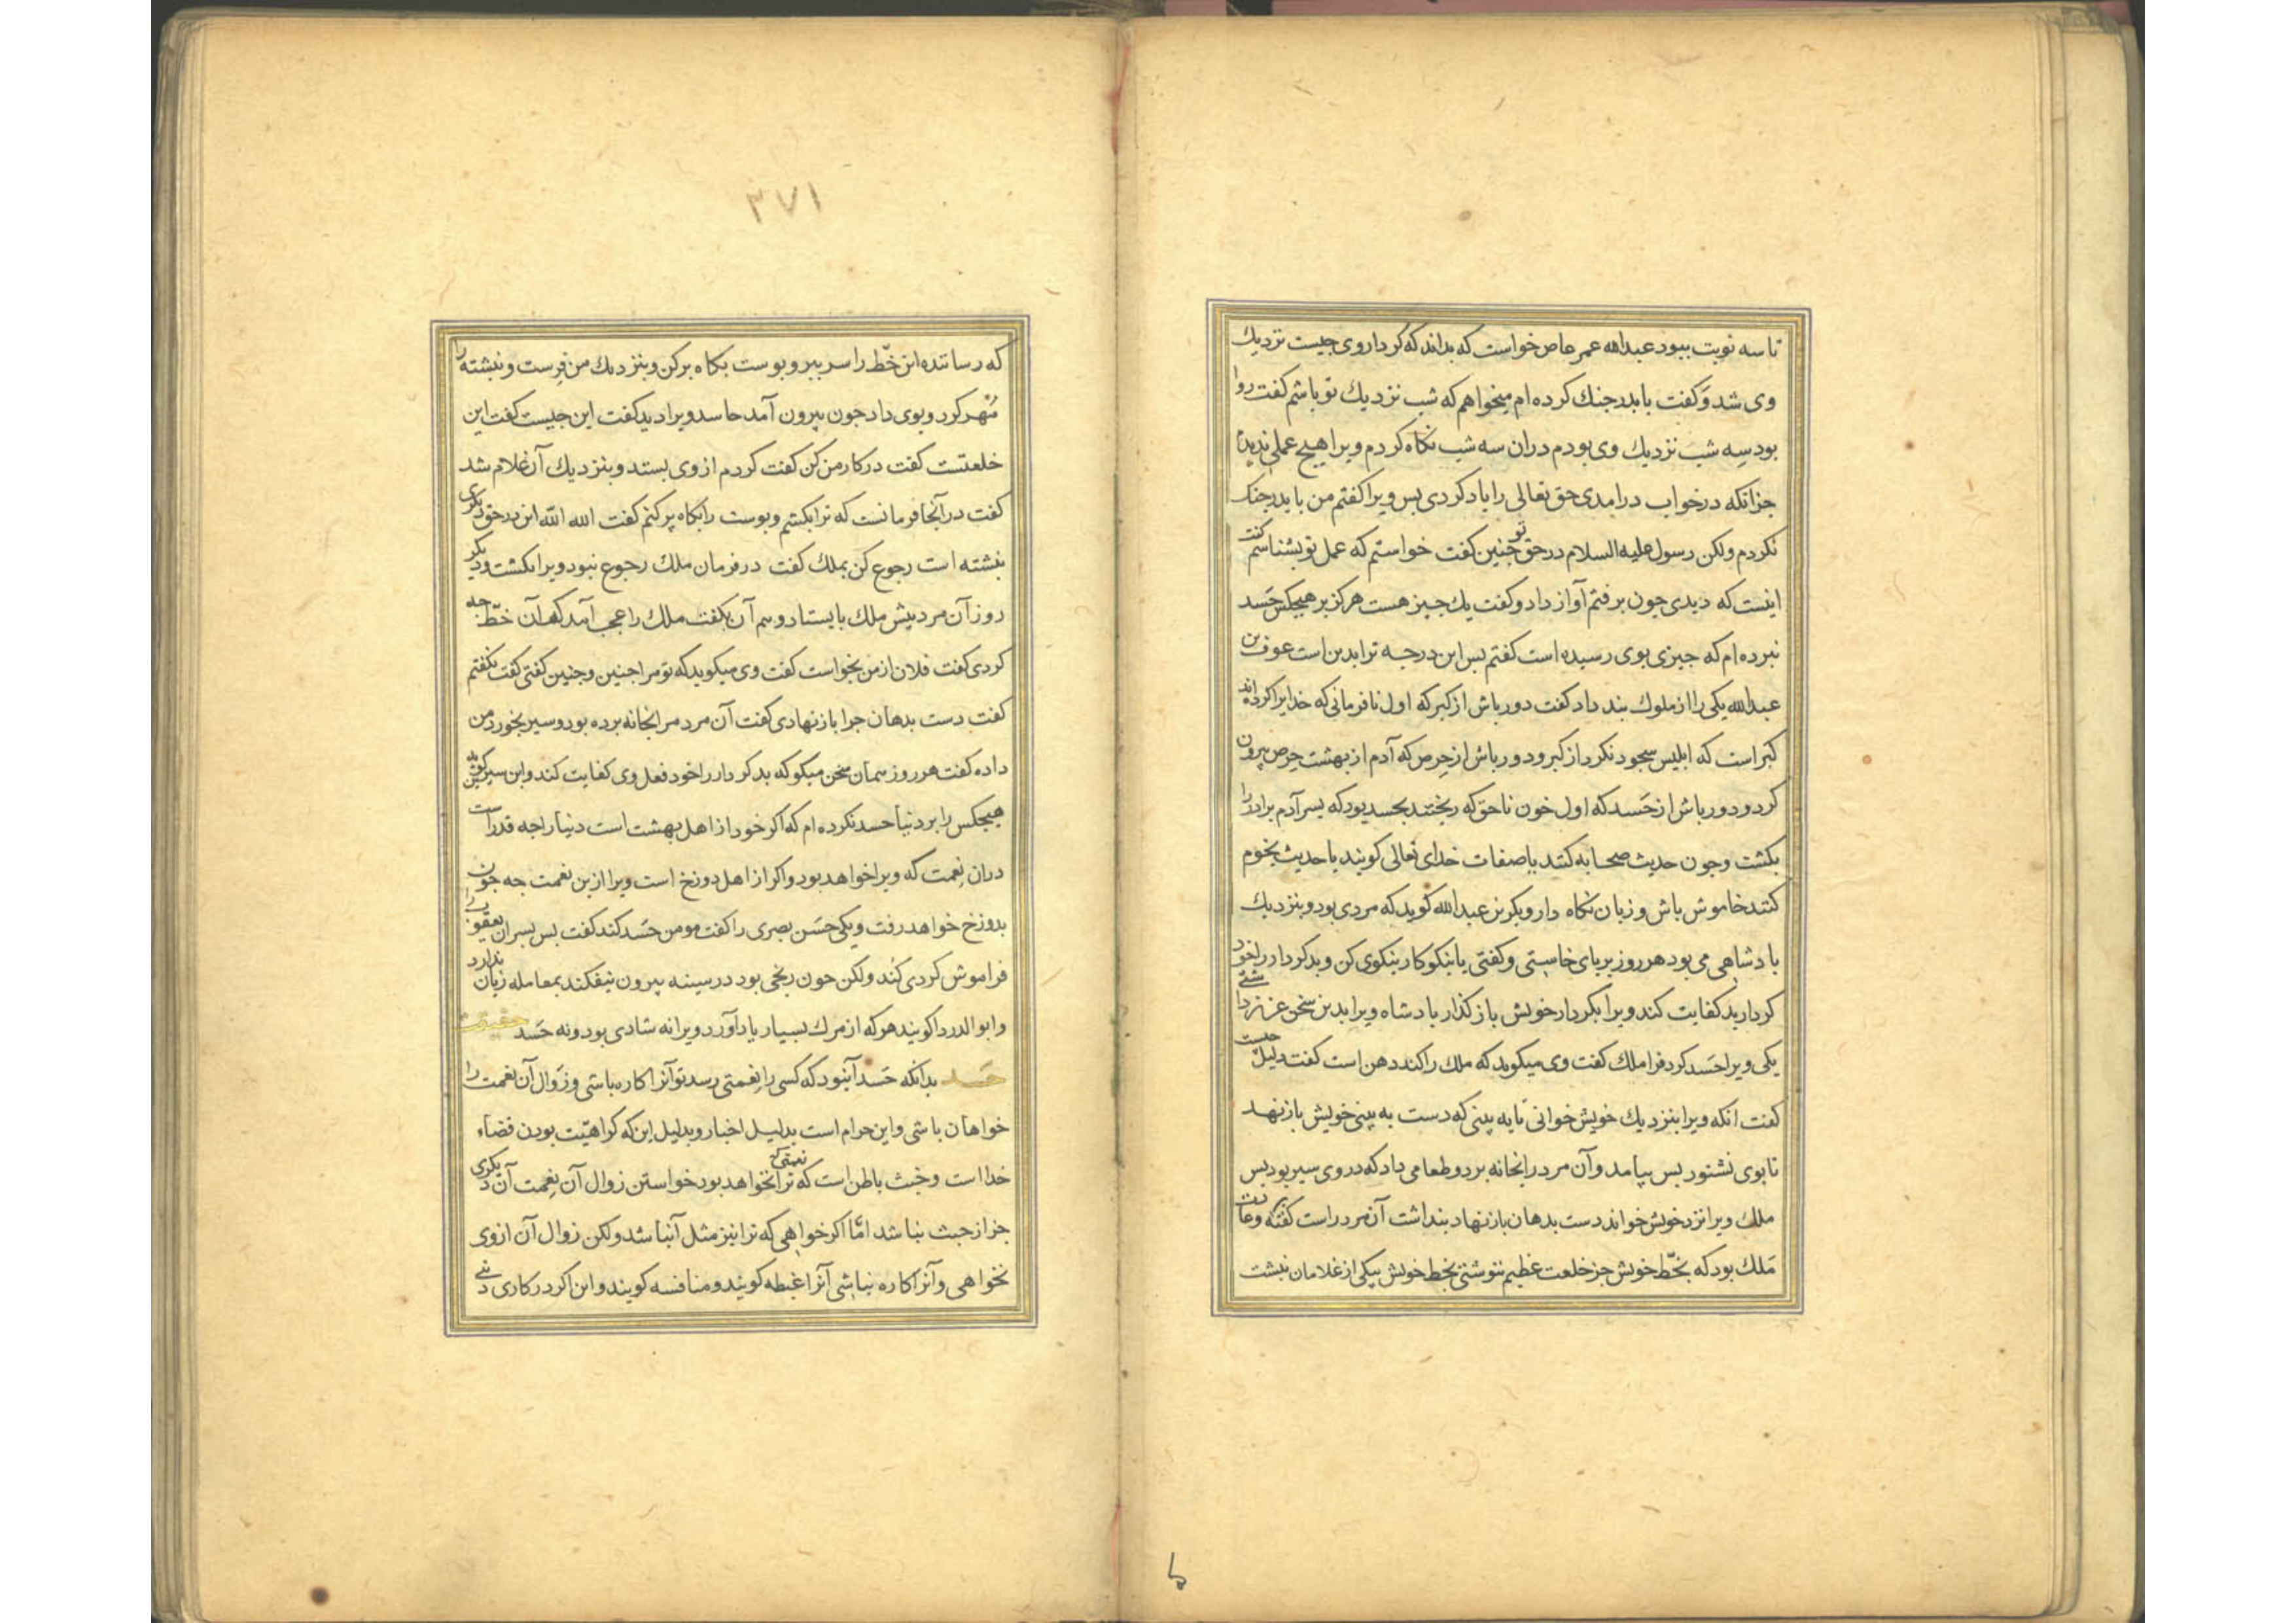 تا سه نوبت ببود عبدالله عمر عاص خواست که بداند که کردار وی جیست نزدیك
وی شد و کفت با بدر جنك کرده ام میخواهم که شب نزدیك تو باشم کفت روا
بود سه شب نزدیك وی بودم دران سه شب نکاه کردم ویرا هیج عملی ندیدم
جز انکه در خواب درامدی حق تعالی را یاد کردی بس ویرا کفتم من با بدر جنك
نکردم ولکن رسول علیه السلام در حق تو جنین کفت خواستم که عمل تو بشناسم کفت
اینست که دیدی جون برفتم آواز داد و کفت یك جیز هست هرکز بر هیجکس حَسد
نبرده ام که جیزی بوی رسیده است کفتم بس این درجه ترا بدین است عوف بن
عبدالله یکی را از ملوك بند داد کفت دور باش از کبر که اول نافرمانی که خدایرا کرده اند
کبر است که ابلیس سجود نکرد از کبر و دور باش از حِرص که آدم از بهشت حِرص بیرون
کرد و دور باش از حَسد که اول خون ناحق که ریختند بحسد بود که بسر آدم برادر را
بکشت و جون حدیث صحابه کنند یا صفات خدای تعالی کویند یا حدیث نجوم
کنند خاموش باش و زبان نکاه دار و بکر بن عبدالله کوید که مردی بود و بنزدیك
بادشاهی می بود هر روز بر بای خاستی و کفتی با نیکوکار نیکوی کن و بدکردار را خود
کردار بد کفایت کند ویرا بکردار خویش باز کذار بادشاه ویرا بدین سخن عزیز داشتی
یکی ویرا حَسد کرد فرا ملك کفت وی میکوید که ملك را کند دهن است کفت دلیل جیست
کفت انکه ویرا بنزدیك خویش خوانی تا به بینی که دست به بینی خویش باز نهد
تا بوی نشنود بس بیامد و آن مرد را بخانه برد و طعامی داد که در وی سیر بود بس
ملك ویرا نزد خویش خواند دست بدهان باز نهاد بنداشت آن مرد راست کفته و عادت
مَلك بود که بخّط خویش جز خلعت عظیم ننوشتی بخط خویش بیکی از غلامان نبشت
٣٧١
که رسانندهٔ این خّط را سر ببر و بوست بکاه بر کن و بنزدیك من فِرست و نبشته را
مُهر کرد و بوی داد جون بیرون آمد حاسد ویرا دید کفت این جیست کفت این
خلعتست کفت در کار من کن کفت کردم از وی بستد و بنزدیك آن غلام شد
کفت در آنجا فرمانست که ترا بکشم و بوست را بکاه بر کنم کفت الله الله این در حق دیکری
نبشته است رجوع کن بملك کفت در فرمان ملك رجوع نبود ویرا بکشت و دیکر
روز آن مرد بیش ملك بایستاد و هم آن بکفت ملك را عجب آمد که آن خّط جه
کردی کفت فلان از من بخواست کفت وی میکوید که تو مرا جنین و جنین کفتی کفت نکفتم
کفت دست بدهان جرا باز نهادی کفت آن مرد مرا بخانه برده بود و سیر بخورد من
داده کفت هر روز همان سخن میکو که بدکردار را خود فعل وی کفایت کند و ابن سیرین کوید
هیجکس را بر دنیا حسد نکرده ام که اکر خود از اهل بهشت است دنیا را جه قدر است
دران نِعمت که ویرا خواهد بود و اکر از اهل دوزخ است ویرا ازین نعمت جه جون
بدوزخ خواهد رفت و یکی حَسَن بصری را کفت مومن حَسد کند کفت بس بسران یعقوب را
فراموش کردی کُند ولکن جون رنجی بود در سینه بیرون نیفکند بمعامله زیان ندارد
و ابوالدردا کویند هرکه از مرك بسیار یاد آورد ویرا نه شادی بود و نه حَسد حقیقت
حَسد بدانکه حَسد آن بود که کسی را نِعمتی رسد تو آنرا کاره باشی و زَوال آن نعمت را
خواهان باشی و این حرام است بدلیل اخبار و بدلیل این که کراهیّت بودن قضاء
خدا است و خبث باطن است که نعمتی که ترا نخواهد بود خواستن زوال آن نِعمت آن دیکری
جز از خبث نباشد امّا اکر خواهی که ترا نیز مثل آن باشد ولکن زوال آن از وی
نخواهی و آنرا کاره نباشی آنرا غبطه کویند و منافسه کویند و این اکر در کاری دنی